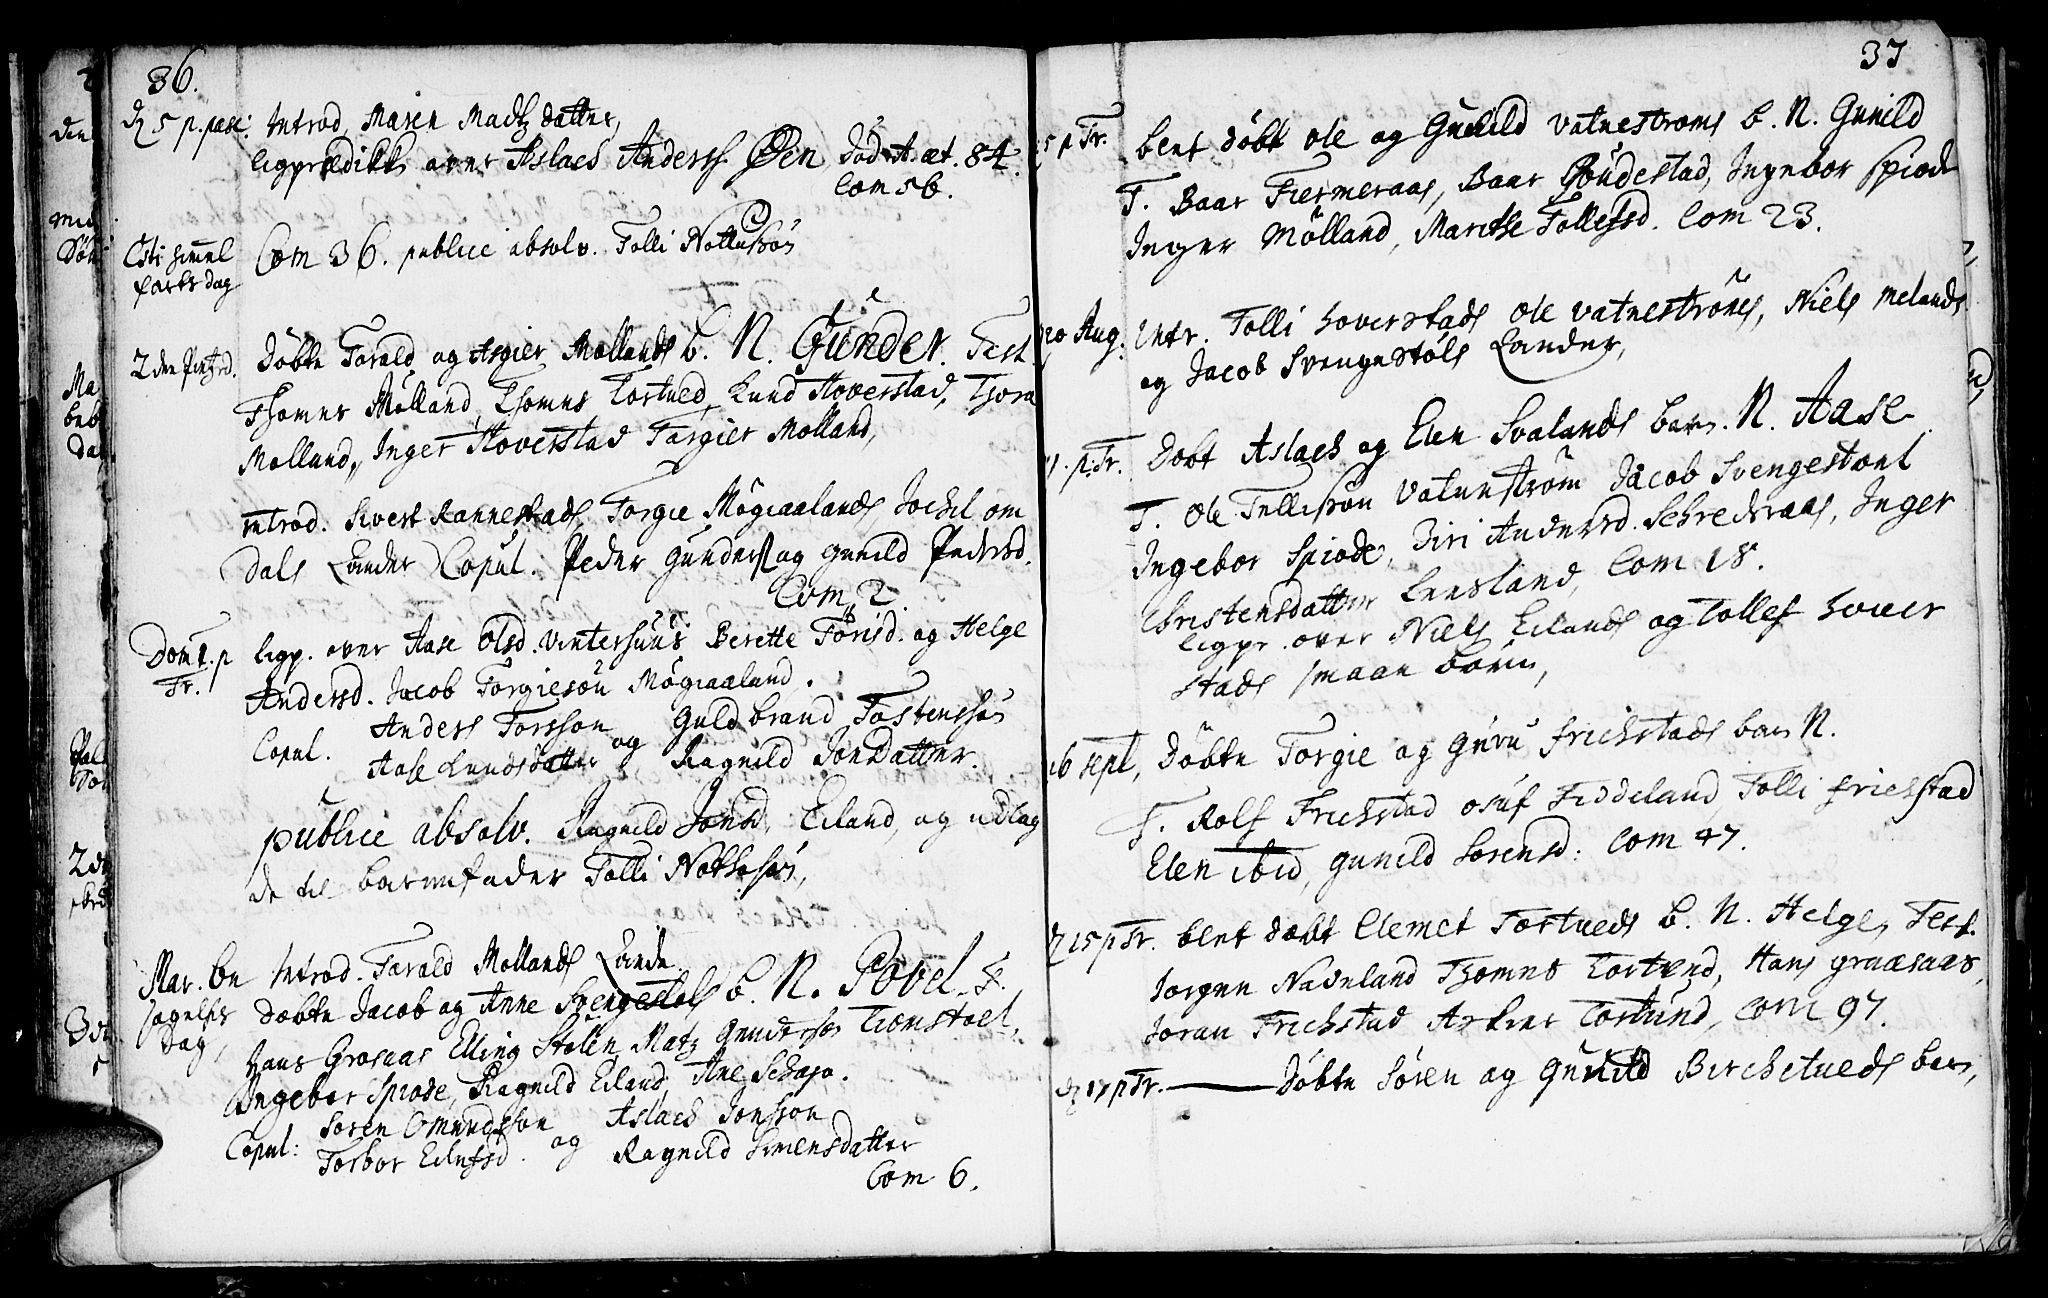 36.
5 p. pasc. Introd. Maren Madtz datter,
ligprædikk over Aslach Anders Øen Død At. æt. 84.
Com 56.
Csti himel Com 36. publice absolv. Tolli Nottussøn
farts dag
2den Døbte Tarald og Asgier Mollands b. N. Gunder. Test
Thomas Mølland, Thomas Tortued, Knud Hoverstad, Thora
Molland, Inger Hoverstad Targier Molland,
introd. Sivert Rannestads, Torgie Møgiaalands, Jochil om
Dals Qander Copul. Peder Gunders og Gunild Pedersd.
Com 2.
Dom 1. p ligp. over Aase Olsd. Vintershuus Berette Torisd. og Helge
Tr. Andersd. Jacob Torgiesøn Møgiaaland.
Copul. Anders Torsson og Guldbrand Tostenssøn
Aase Knudsdatter Ragnild Jondatter.
publice absolv. Ragnild Jonsd. Eiland, og udlag
de til barnefader Tolli Nottosøn,
Mar. be Introd. Tarald Mollands Qande
søgelses Døbte Jacob og Anne Svengestøls b. N. Povel. T.
Dag, Hans Grosaas Elling Stølen Matz Gundersøn Tiomstøel,
Ingebor Spiode, Ragnild Eiland, Ane Schaja.
Copul: Soren Omundsson og Aslach Jonsson
Torbor Eilufsd. Ragnild Simensdatter
Com 6.
37
5 p Tr. blef døbt Ole og Gunild Vatnestrøms b. N. Gunild
T. Baar Fiermeraas, Baar Røudestad, Ingebor Spiode
Inger Mølland, Marithe Tollefsd. Com 23.
20 Aug. Intr. Tolli hoverstads Ole Vatnestrøms, Niels Melands
og Jacob Svengestøls Qander,
11. p. Tr. Døbt Aslach og Elen Svalands barn. N. Aase
T. Ole Tellissøn Vatnestrøm Jacob Svengestøel
Ingebor Spiode, Siri Andersd. Schredsraas, Inger
Christensdatter Lunsland, Com 18.
ligpr. over Niels Eilands og Tollef hover
stads smaae børn,
16 sept, Døbte Torgie og Guru Frichstads barn N.
T. Rolf Frichstad Osuf Fiddeland, Tolli Frichstad
Elen ibid, Gunild Sorensd: Com 47.
15 p Tr. blef døbt Clemet Tortueds b. N. Helge, Test.
Jorgen Nadeland Thomas Tortved, Hans Graasaas,
Joran Frichstad Asker Tortund, Com 97.
17 p Tr. Døbte Søren og Gunild Birchetueds barn,